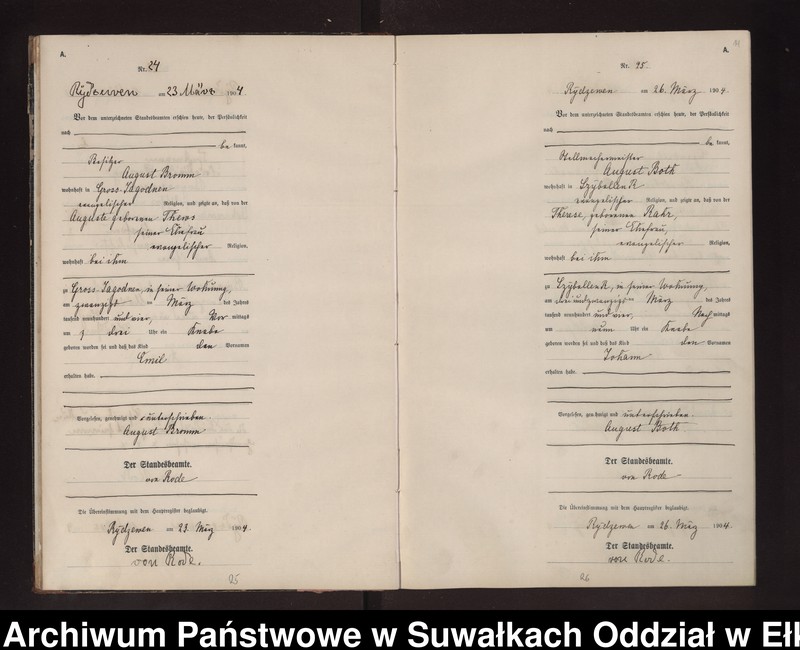 A.
Nr. 24
Rydzewen am 23 März 1904
Vor dem unterzeichneten Standesbeamten erschien heute, der Persönlichkeit
nach
be kannt,
Besitzer
August Bromm
wohnhaft in Gross-Jagodnen
evangelischer Religion, und zeigte an, daß von der
Auguste geborenen Thews
seiner Ehefrau
evangelischer Religion,
wohnhaft bei ihm
zu Gross-Jagodnen, in seiner Wohnung,
am zwanzigsten März des Jahres
tausend neunhundert und vier, Vor mittags
um drei Uhr ein Knabe
geboren worden sei und daß das Kind den Vornamen
Emil
erhalten habe.
Vorgelesen, genehmigt und unterschrieben.
August Bromm
Der Standesbeamte.
von Rode
Die Übereinstimmung mit dem Hauptregister beglaubigt.
Rydzewen am 23. März 1904.
Der Standesbeamte.
von Rode.
25
A.
Nr. 25.
Rydzewen am 26. März 1904.
Vor dem unterzeichneten Standesbeamten erschien heute, der Persönlichkeit
nach
be kannt,
Stellmachermeister
August Both
wohnhaft in Szybellenk
evangelischer Religion, und zeigte an, daß von der
Therese, geborenen Ratz,
seiner Ehefrau,
evangelischer Religion,
wohnhaft bei ihm
zu Szybellenk, in seiner Wohnung,
am dreiundzwanzigsten März des Jahres
tausend neunhundert und vier, Nach mittags
um neun Uhr ein Knabe
geboren worden sei und daß das Kind den Vornamen
Johann
erhalten habe.
Vorgelesen, genehmigt und unterschrieben.
August Both
Der Standesbeamte.
von Rode
Die Übereinstimmung mit dem Hauptregister beglaubigt.
Rydzewen am 26. März 1904.
Der Standesbeamte.
von Rode.
26
Archiwum Państwowe w Suwałkach Oddział w Ełk